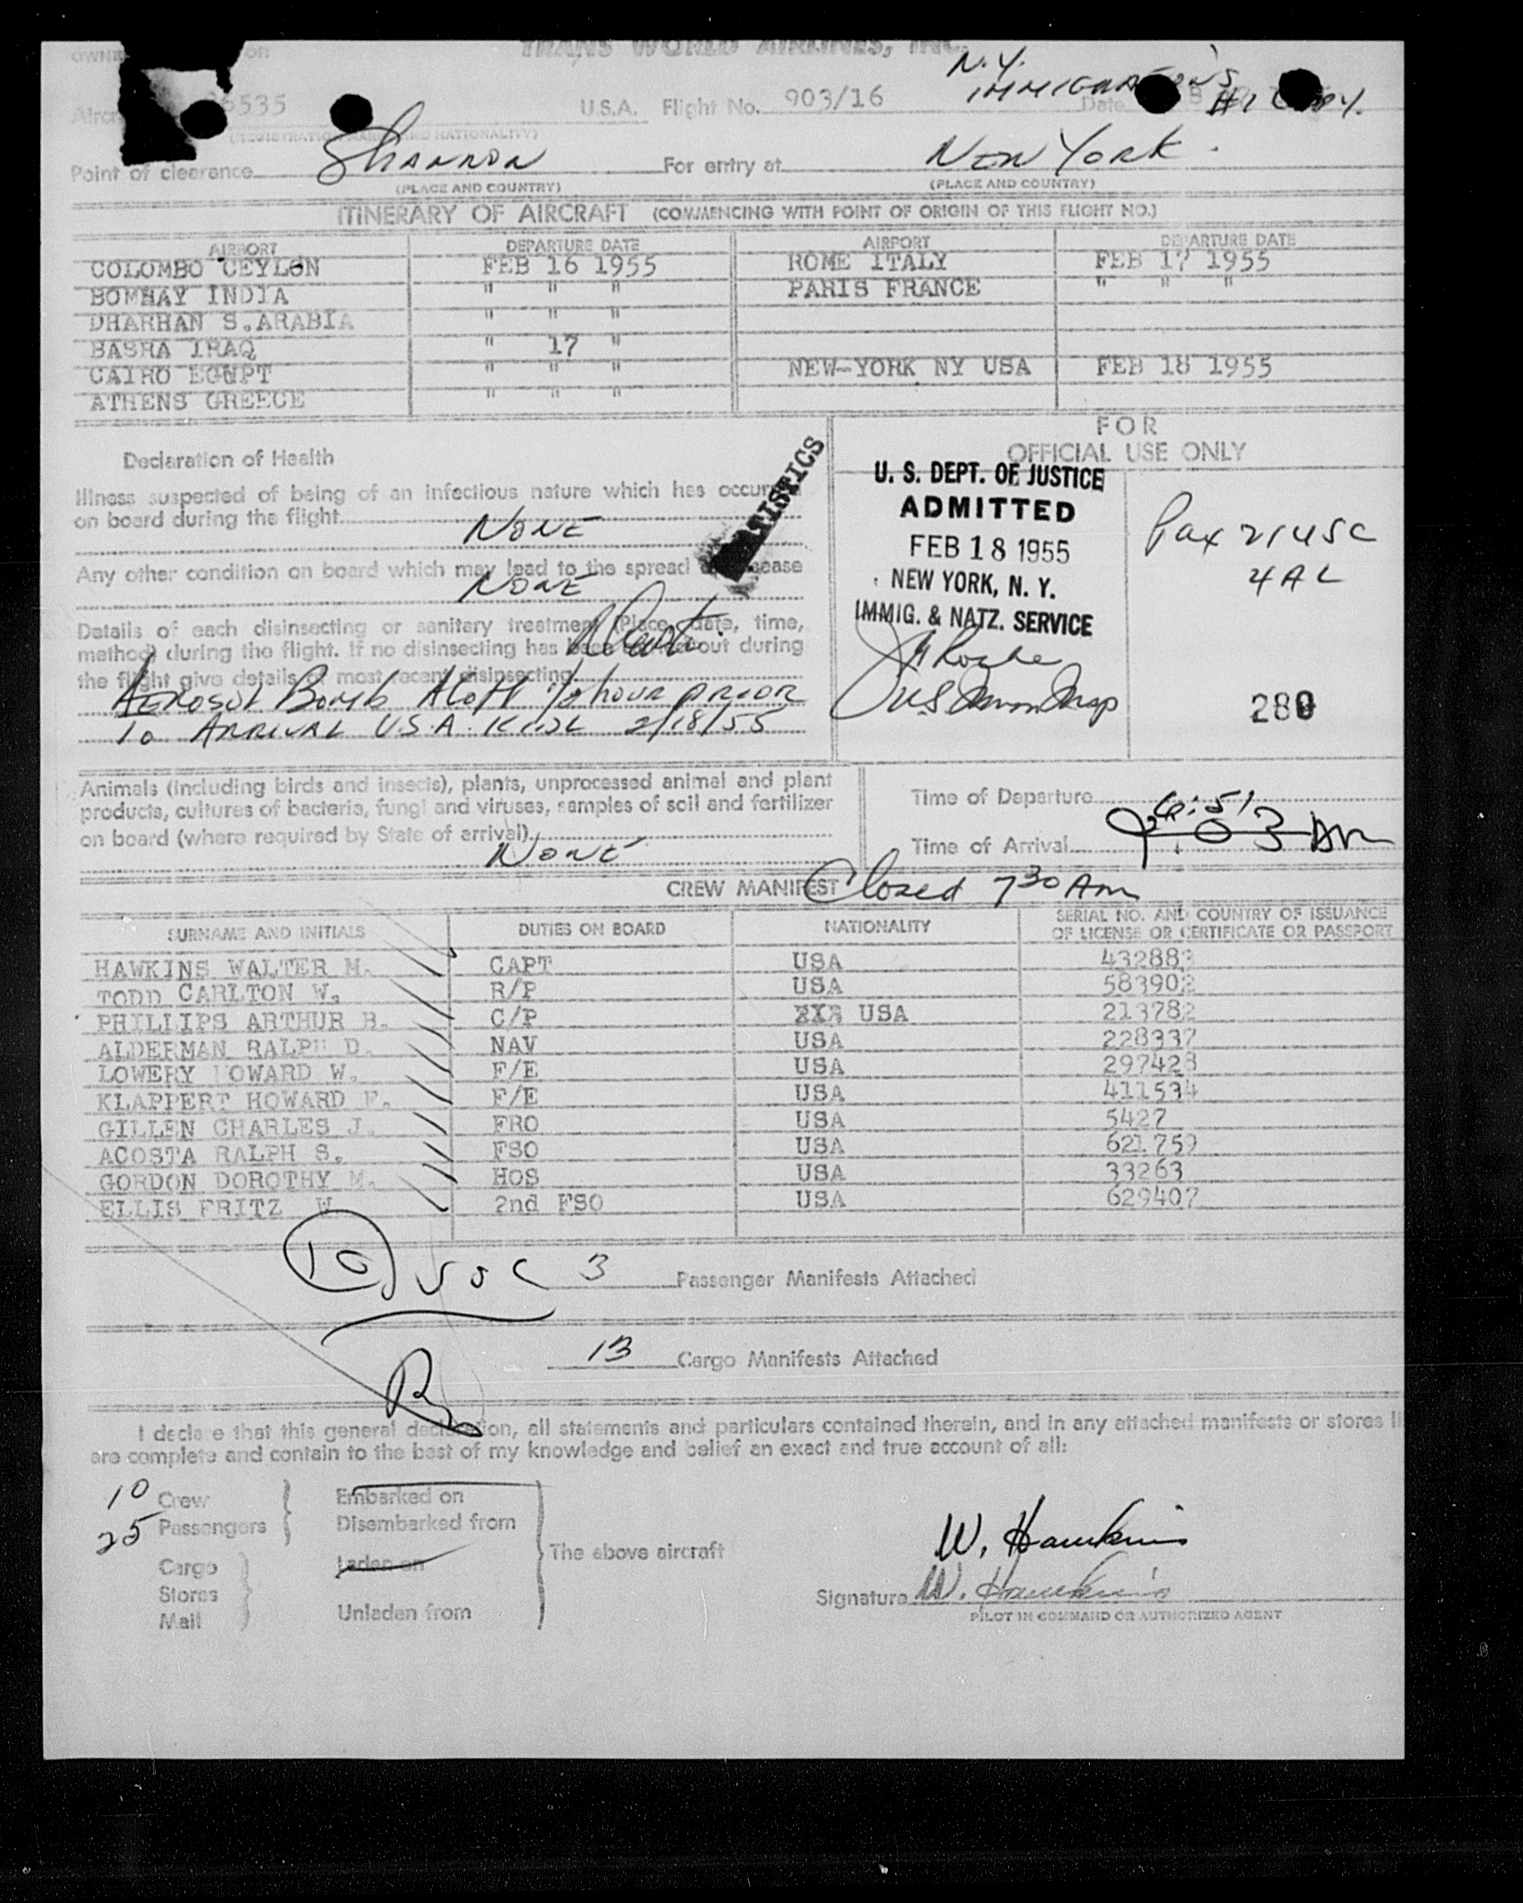 TRANS WORLD AIRLINES, INC.
N.Y.
IMMIGRATIONS
#1 COPY.
5535 U.S.A. Flight No. 903/16 Date
(REGISTRATION MARKS AND NATIONALITY)
Point of clearance SHANNON For entry at NEW YORK.
(PLACE AND COUNTRY) (PLACE AND COUNTRY)
ITINERARY OF AIRCRAFT (COMMENCING WITH POINT OF ORIGIN OF THIS FLIGHT NO.)
AIRPORT DEPARTURE DATE AIRPORT DEPARTURE DATE
COLOMBO CEYLON FEB 16 1955 ROME ITALY FEB 17 1955
BOMBAY INDIA " " " PARIS FRANCE " " "
DHARHAN S.ARABIA " " "
BASRA IRAQ " 17 "
CAIRO EGYPT " " " NEW-YORK NY USA FEB 18 1955
ATHENS GREECE " " "
FOR
OFFICIAL USE ONLY
Declaration of Health
Illness suspected of being of an infectious nature which has occurred
on board during the flight NONE
Any other condition on board which may lead to the spread of disease
NONE
Details of each disinsecting or sanitary treatment (Place, date, time,
method) during the flight. If no disinsecting has been carried out during
the flight give details of most recent disinsecting.
AEROSOL BOMB ALOFT 1/2 HOUR PRIOR
TO ARRIVAL U.S.A. 2/18/55
STATISTICS
U. S. DEPT. OF JUSTICE
ADMITTED
FEB 18 1955
NEW YORK, N. Y.
IMMIG. & NATZ. SERVICE
Pax 21 USC
4 AL
280
Animals (including birds and insects), plants, unprocessed animal and plant
products, cultures of bacteria, fungi and viruses, samples of soil and fertilizer
on board (where required by State of arrival)
NONE
Time of Departure
6:51
Time of Arrival :03 AM
CREW MANIFEST Closed 7 30 AM
SURNAME AND INITIALS DUTIES ON BOARD NATIONALITY SERIAL NO. AND COUNTRY OF ISSUANCE
OF LICENSE OR CERTIFICATE OR PASSPORT
HAWKINS WALTER M. CAPT USA 432883
TODD CARLTON W. R/P USA 583902
PHILLIPS ARTHUR B. C/P USA 213782
ALDERMAN RALPH D. NAV USA 228337
LOWERY HOWARD W. F/E USA 297423
KLAPPERT HOWARD F. F/E USA 411534
GILLEN CHARLES J. FRO USA 5427
ACOSTA RALPH S. FSO USA 621759
GORDON DOROTHY M. HOS USA 33263
ELLIS FRITZ W 2nd FSO USA 629407
10 USC 3 Passenger Manifests Attached
13 Cargo Manifests Attached
I declare that this general declaration, all statements and particulars contained therein, and in any attached manifests or stores li
are complete and contain to the best of my knowledge and belief an exact and true account of all:
10 Crew Embarked on
25 Passengers Disembarked from
The above aircraft
Cargo Laden on
Stores
Mail Unladen from
W. Hawkins
Signature W. Hawkins
PILOT IN COMMAND OR AUTHORIZED AGENT